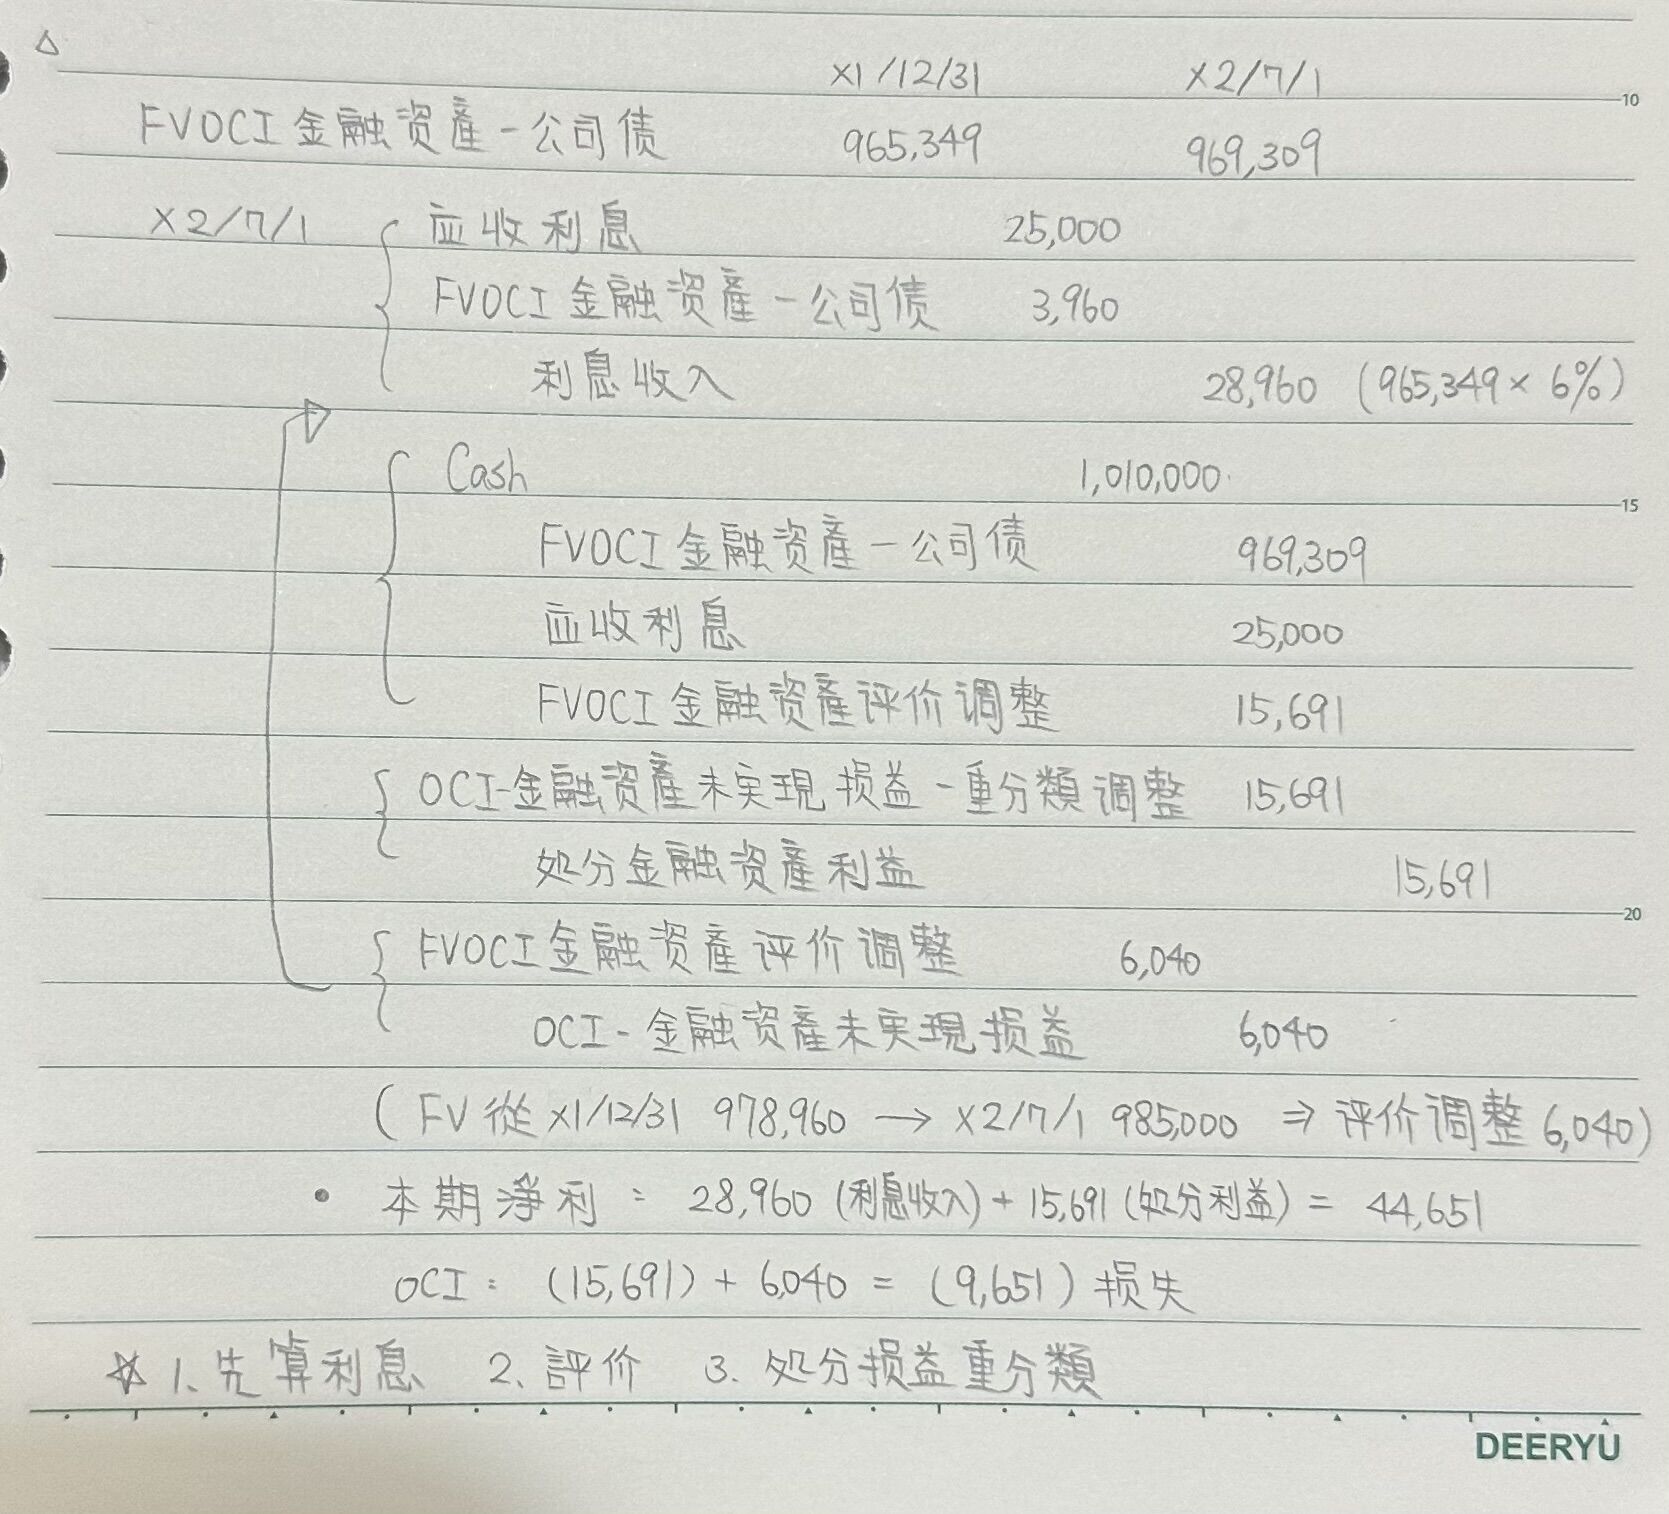 X1/12/31 X2/7/1
10
FVOCI 金融资產-公司债 965,349 969,309
X2/7/1 应收利息 25,000
FVOCI 金融资產-公司债 3,960
利息收入 28,960 (965,349 × 6%)
Cash 1,010,000
15
FVOCI 金融资產-公司债 969,309
应收利息 25,000
FVOCI 金融资產评价调整 15,691
OCI-金融资產未实現损益-重分類调整 15,691
处分金融资產利益 15,691
20
FVOCI 金融资產评价调整 6,040
OCI-金融资產未实現损益 6,040
(FV 從 X1/12/31 978,960 → X2/7/1 985,000 ⇒ 评价调整 6,040)
• 本期淨利: 28,960 (利息收入) + 15,691 (处分利益) = 44,651
OCI: (15,691) + 6,040 = (9,651) 损失
☆ 1. 先算利息 2. 評价 3. 处分损益重分類
DEERYU